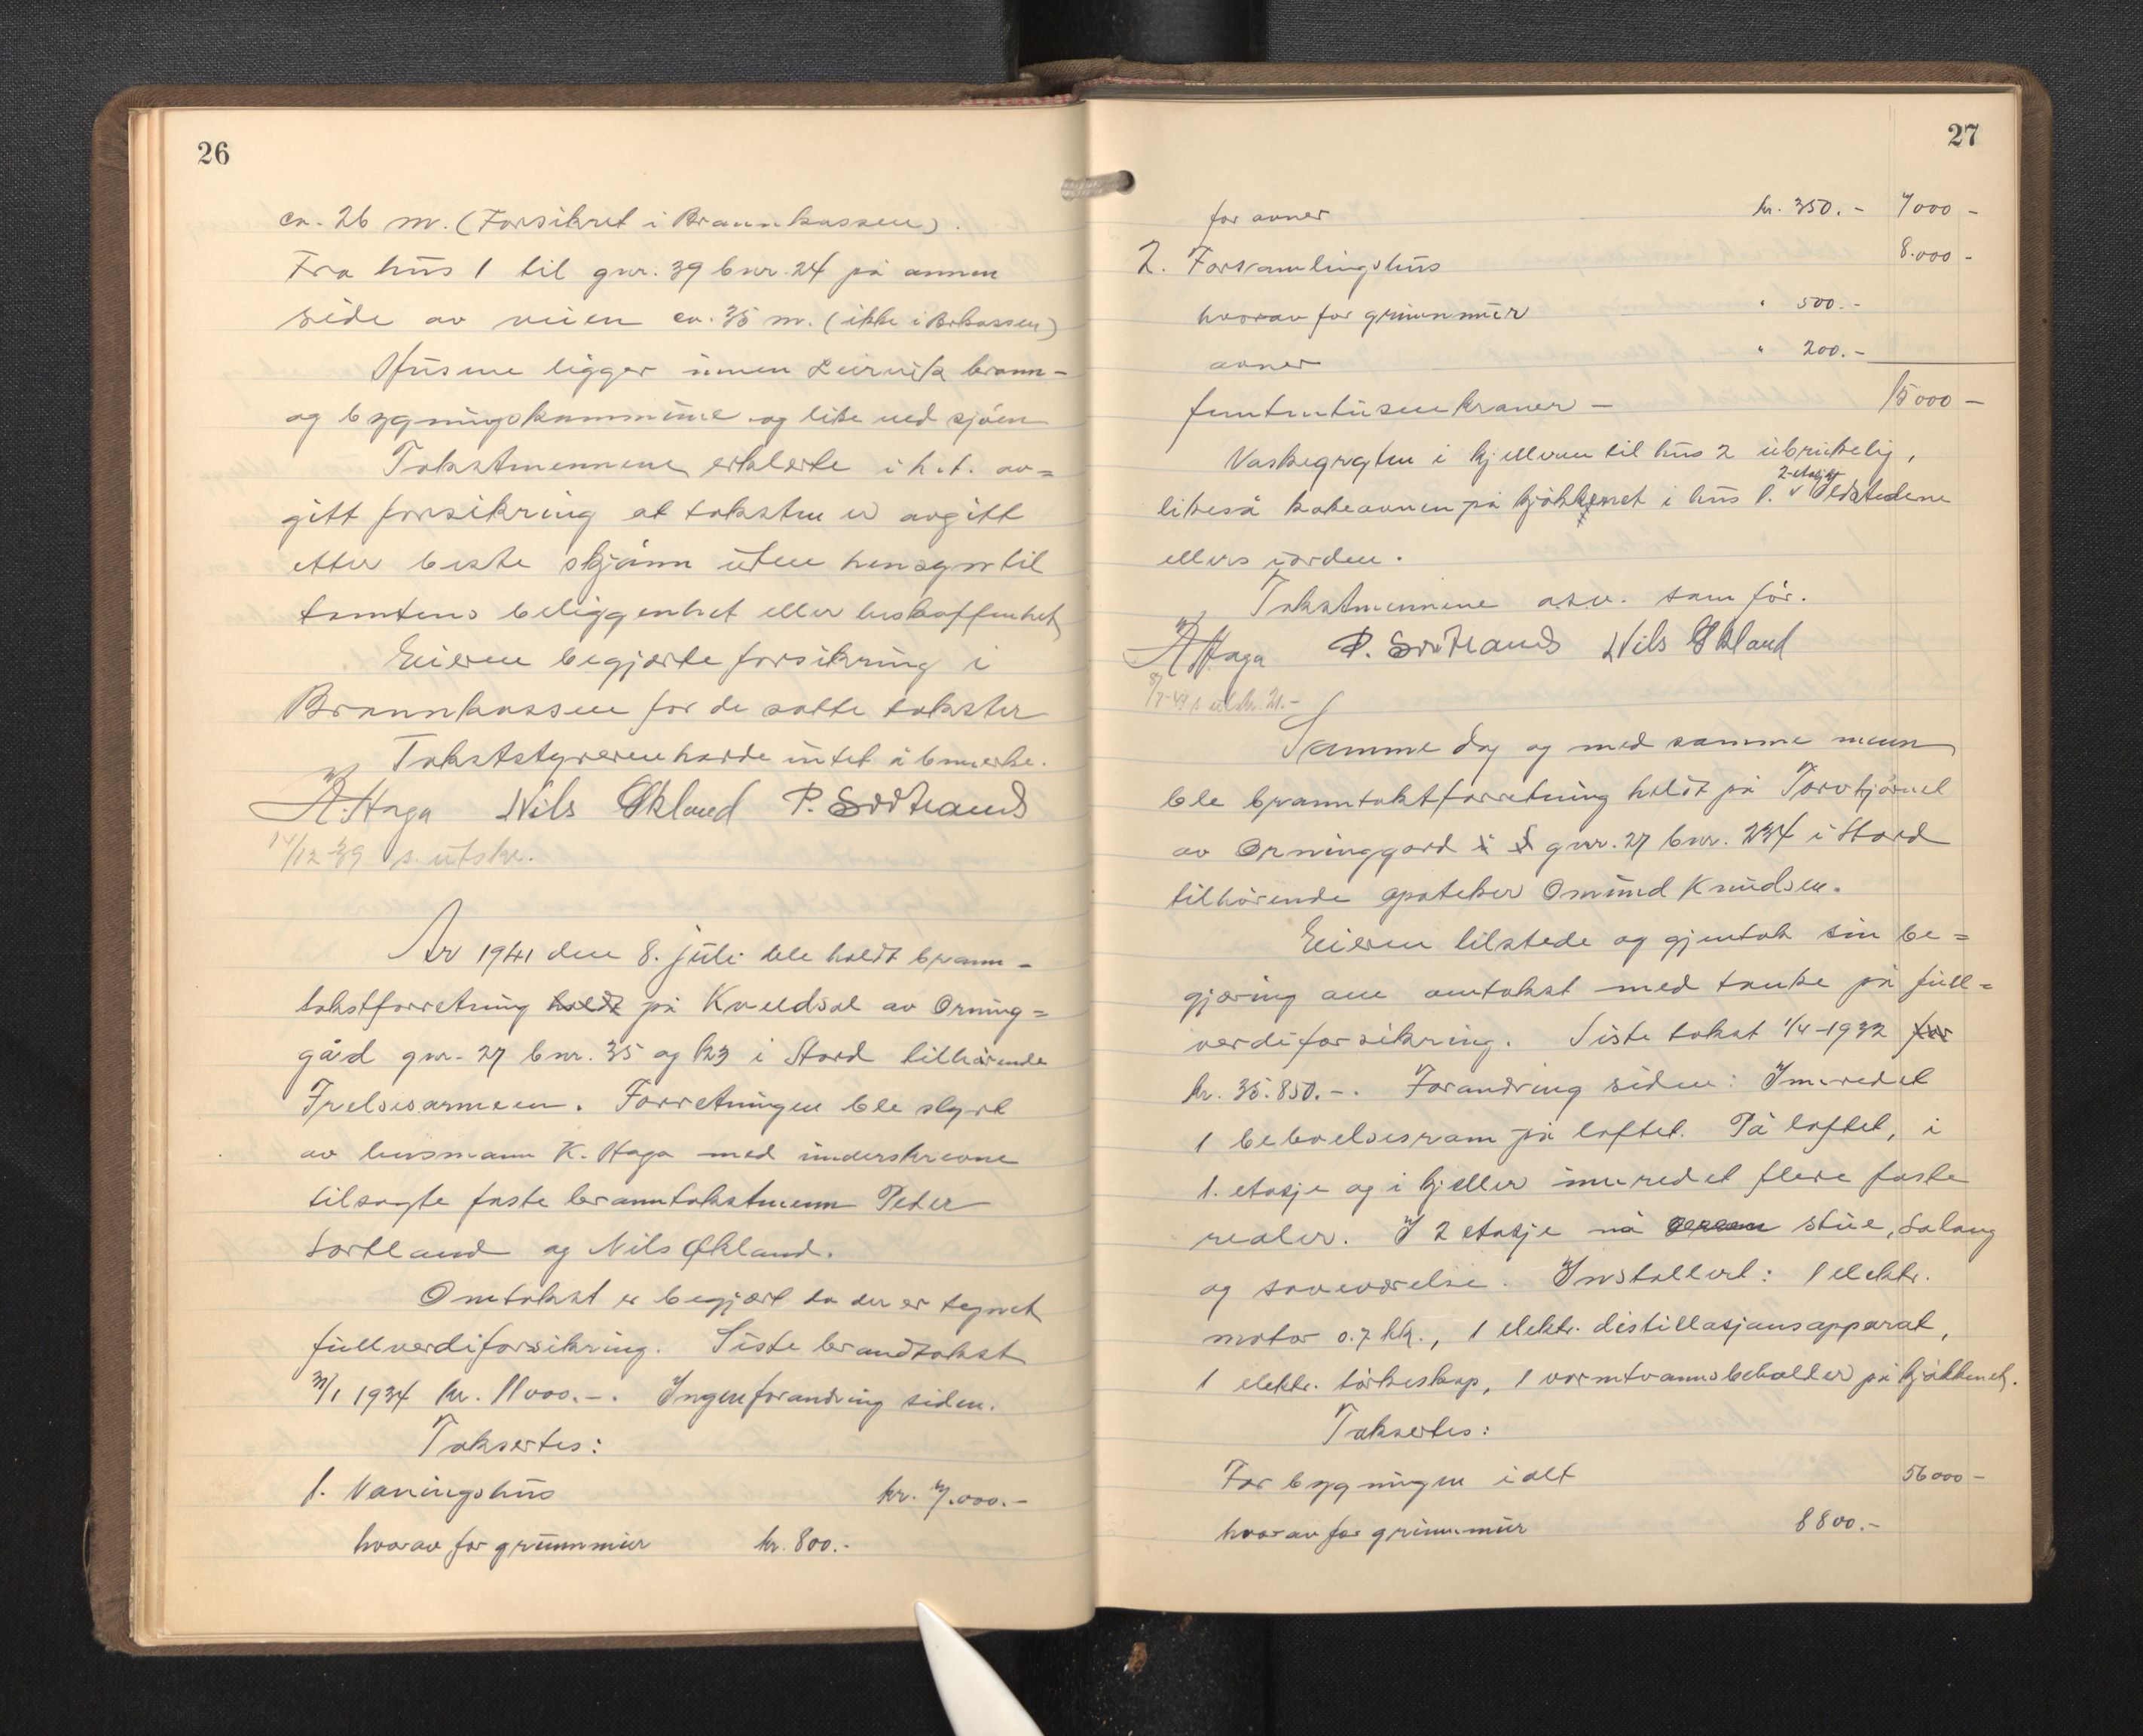 26
ca. 26 m. (Forsikret i Brannkassen).
Fra hus 1 til gnr. 39 bnr. 24 på annen
side av veien ca. 35 m. (ikke i Brkassen)
Husene ligger innen Leirvik brann-
og bygningskommune og like ved sjøen
Takstmennene erklærte i h.t. av=
gitt forsikring at taksten er avgitt
etter beste skjønn uten hensyn til
tomtens beliggenhet eller beskaffenhet
Eieren begjærte forsikring i
Brannkassen for de satte takster
Takststyreren hadde intet å bemerke.
K. Haga Nils Økland P. Sortland
14/12-39 s. utskr.
År 1941 den 8. juli ble holdt brann-
takstforretning holdt på Kveldsol av Orning=
gård gnr. 27 bnr. 35 og 123 i Stord tilhørende
Frelsesarmeen. Forretningen ble styrt
av lensmann K. Haga med underskrevne
tilsagte faste branntakstmenn Peder
Sortland og Nils Økland.
Omtakst er begjært da der er tegnet
fullverdiforsikring. Siste brandtakst
31/1 1934 kr. 11000.-. Ingen forandring siden.
Takseres:
1. Vaningshus kr. 7.000.-
hvorav for grunnmur kr. 800.-
27
for ovner kr. 350.- 7000 -
2. Forsamlingshus 8.000 -
hvorav for grunnmur " 500.-
ovner " 200.-
femtentusenkroner - 15000 -
Vaskegryten i kjelleren til hus 2 ubrukelig,
likeså kokeovnen på kjøkkenet i hus 1. 2-etasje Ildstedene
ellers iorden.
Takstmennene osv. som før.
K. Haga P. Sortland Nils Økland
8/7-41 s. utskr. 21.-
Samme dag og med samme menn
ble branntakstforretning holdt på Torvkjørnel
av Orninggard gnr. 27 bnr. 234 i Stord
tilhørende apoteker Omund Knudsen.
Eieren tilstede og gjentok sin be=
gjæring om omtakst med tanke på full=
verdiforsikring. Siste takst 1/4-1932 for
kr. 35.850.-. Forandring siden: Innredet
1 beboelsesrom på loftet. På loftet, i
1. etasje og i kjeller innredet flere faste
reoler. I 2 etasje nå stue, salong
og soveværelse. Installert: 1 elektr.
motor 0.7 hk., 1 elektr. distillasjonsapparat,
1 elektr. tørkeskap, 1 varmtvannsbeholder på kjøkkenet.
Takseres:
For bygningen ialt 56000 -
hvorav for grunnmur 8800.-